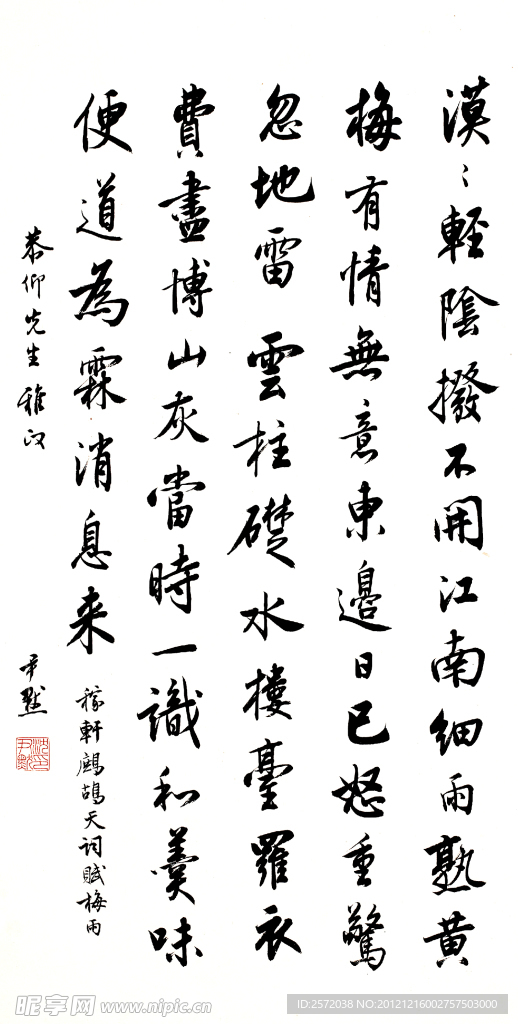 漠〻輕陰撥不開江南細雨熟黃
梅有情無意東邉日已怒重驚
忽地雷 雲柱礎水樓臺羅衣
費盡博山灰當時一識和羹味
便道為霖消息来
稼軒鷓鴣天詞賦梅雨
恭仰先生雅政
尹默
沈尹默印
昵享网 www.nipic.cn
ID:2572038 NO:20121216002757503000